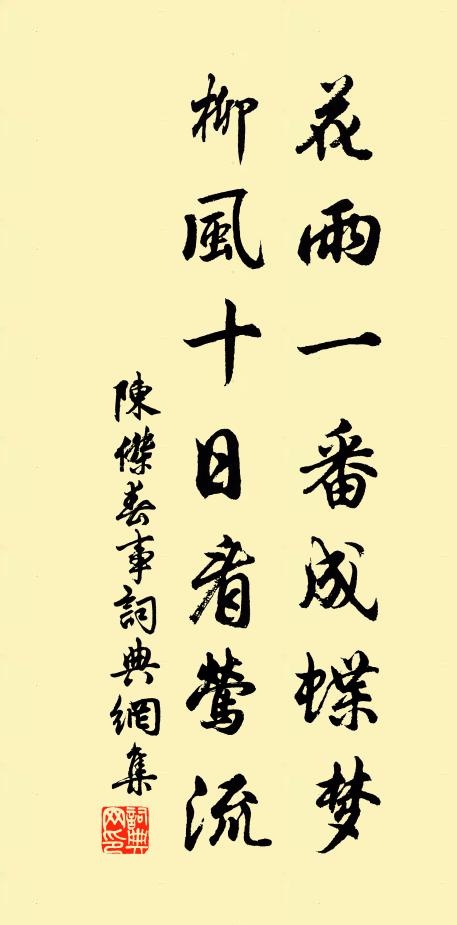 花雨一番成蝶梦
柳風十日看鶯流
陳傑春事詞典網集
詞典网印